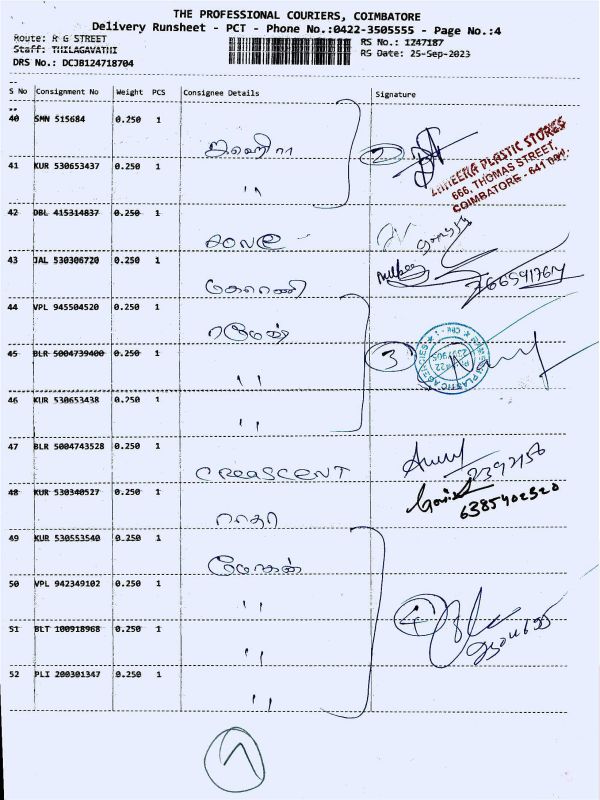 THE PROFESSIONAL COURIERS, COIMBATORE
Delivery Runsheet - PCT - Phone No.:0422-3505555 - Page No.:4
Route: R G STREET
Staff: THILAGAVATHI
DRS No.: DCJB124718704
RS No.: 1Z47187
RS Date: 25-Sep-2023
S No Consignment No Weight PCS Consignee Details Signature
40 SMN 515684 0.250 1
2
LAHEERA PLASTIC STORES
666, THOMAS STREET,
COIMBATORE - 641 001.
41 KUR 530653437 0.250 1 ''
42 DBL 415314837 0.250 1
43 JAL 530306720 0.250 1
7665941764
44 VPL 945504520 0.250 1 ரமேஷ்
45 BLR 5004739400 0.250 1 ''
3
46 KUR 530653438 0.250 1 ''
47 BLR 5004743528 0.250 1 CREASCENT
2392156
48 KUR 530340527 0.250 1 ராதா
6385402320
49 KUR 530553540 0.250 1 மோகன்
50 VPL 942349102 0.250 1 ''
4
51 BLT 100918968 0.250 1 ''
52 PLI 200301347 0.250 1 ''